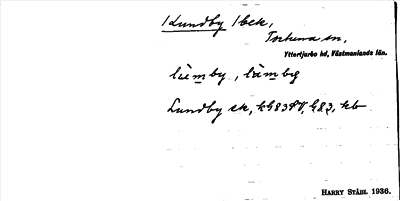 /Lundby/ bek,
Tortuna sn,
Yttertjurbo hd, Västmanlands län.
lùmby, lùmby
Lundby ek,
HARRY STÅHL 1936.